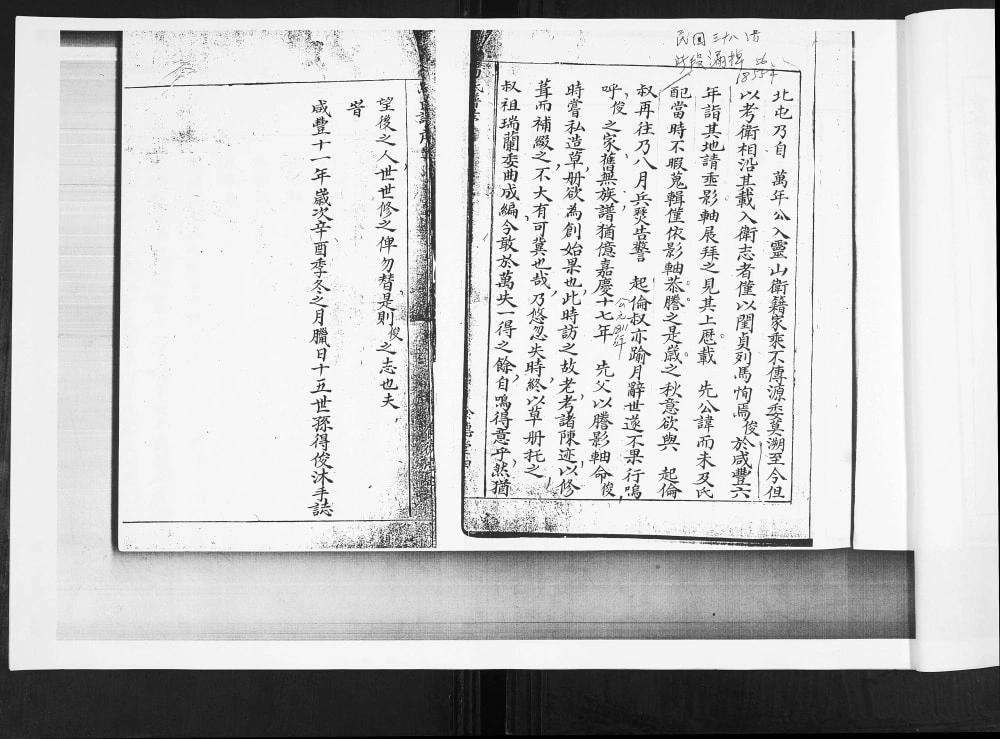 民國三十八
此段滿
1855年
北屯乃自　萬年公入靈山衛籍家乘不傳源委莫溯至今但
以考衛相沿其載入衛志者僅以閨貞列馬恂焉俊於咸豐六
年詣其地請乘影軸展拜之見其上歷載　先公諱而未及氏
配當時不暇蒐輯僅依影軸恭謄之是歲之秋意欲與　起倫
叔再往乃八月兵燹告警　起倫叔亦踰月辭世遂不果行嗚
呼俊之家舊無族譜猶億嘉慶十七年　先父以謄影軸命俊
公元
時嘗私造草册欲為創始果也此時訪之故老考諸陳迹以修
葺而補綴之不大有可冀也哉乃悠忽失時終以草册托之
叔祖瑞蘭委曲成編今敢於萬失一得之餘自鳴得意乎然猶
望後之人世世修之俾勿替是則俊之志也夫
旹
咸豐十一年歲次辛酉季冬之月臘日十五世孫得俊沐手誌